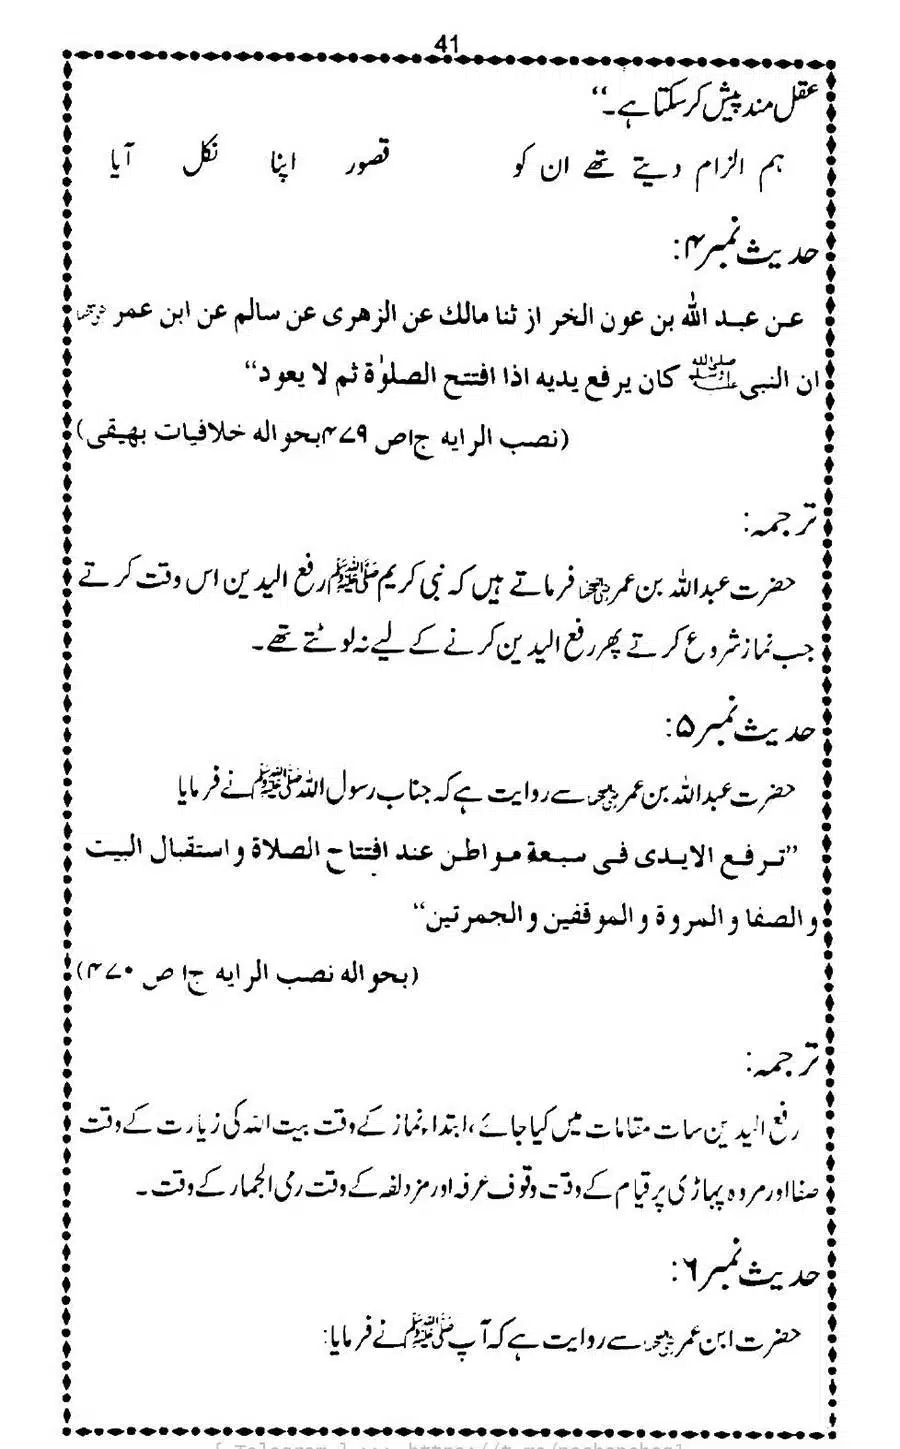 41
عقل مند پیش کر سکتا ہے۔“
ہم الزام دیتے تھے ان کو قصور اپنا نکل آیا
حدیث نمبر ۴:
عن عبد اللہ بن عون الخر از ثنا مالك عن الزهری عن سالم عن ابن عمر
ان النبی ﷺ کان یرفع یدیه اذا افتتح الصلوٰۃ ثم لا یعود“
(نصب الرایه ج۱ص ۴۷۹بحواله خلافیات بهیقی)
ترجمہ:
حضرت عبداللہ بن عمر فرماتے ہیں کہ نبی کریم ﷺ رفع الیدین اس وقت کرتے
جب نماز شروع کرتے پھر رفع الیدین کرنے کے لیے نہ لوٹتے تھے۔
حدیث نمبر ۵:
حضرت عبداللہ بن عمر سے روایت ہے کہ جناب رسول اللہ ﷺ نے فرمایا
”ترفع الایدی فی سبعة مواطن عند افتتاح الصلاة و استقبال البیت
و الصفا و المروة و الموقفین و الجمرتین“
(بحواله نصب الرایه ج۱ ص ۴۷۰)
ترجمہ:
رفع الیدین سات مقامات میں کیا جائے، ابتداء نماز کے وقت بیت اللہ کی زیارت کے وقت
صفا اور مروہ پہاڑی پر قیام کے وقت وقوف عرفہ اور مزدلفہ کے وقت رمی الجمار کے وقت۔
حدیث نمبر ۶:
حضرت ابن عمر سے روایت ہے کہ آپ ﷺ نے فرمایا: